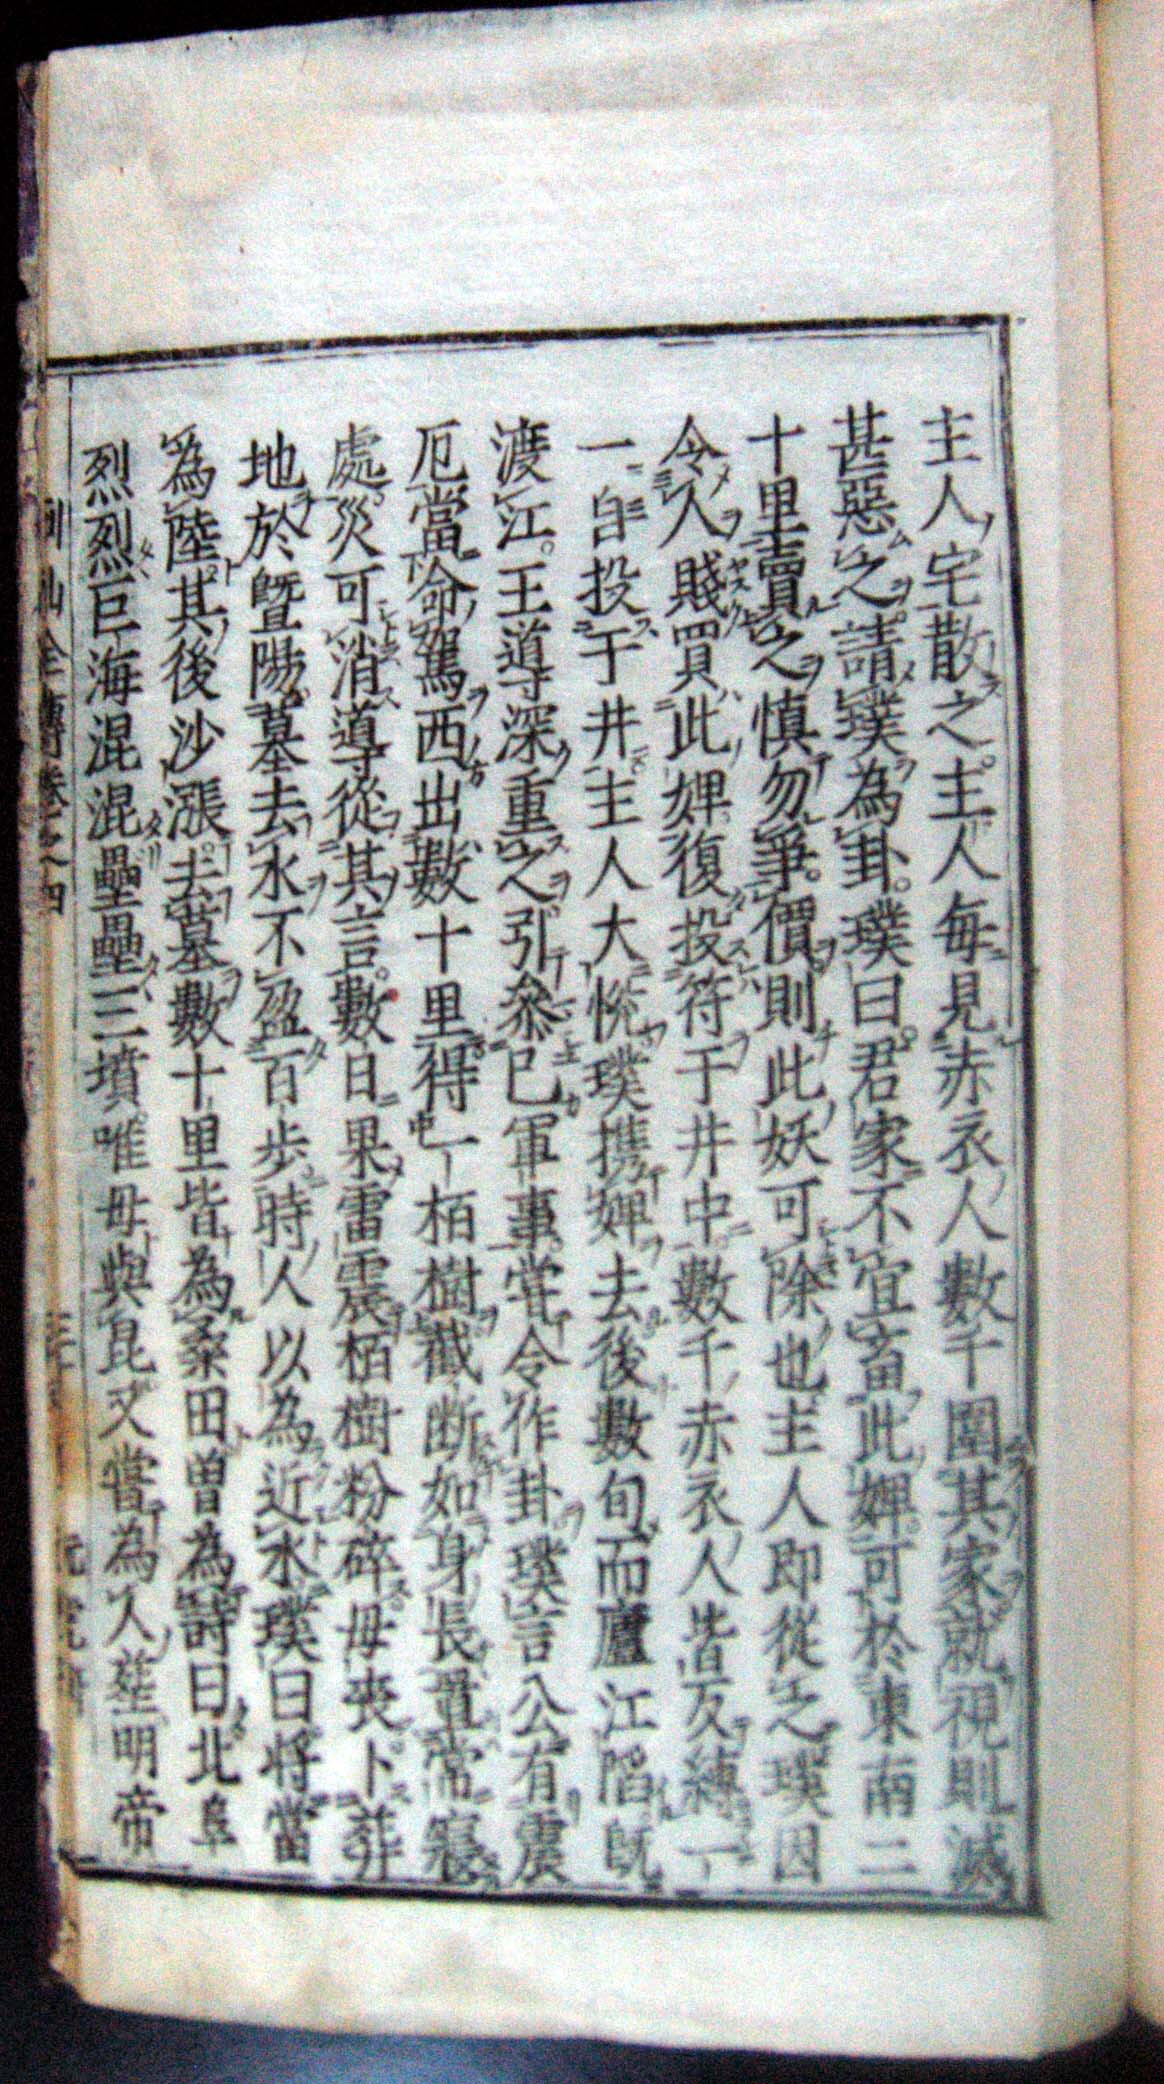 主人宅散之主人每見赤衣人數千圍其家就視則滅
甚惡之請璞為卦璞曰君家不宜畜此婢可於東南二
十里賣之慎勿爭價則此妖可除也主人即從之璞因
令人賤買此婢復投符于井中數千赤衣人皆反縛一
一自投于井主人大悅璞携婢去後數旬而廬江陷既
渡江王導深重之引叅已軍事嘗令作卦璞言公有震
厄當命駕西出數十里得一栢樹截断如身長置常寢
處災可消導從其言數日果雷震栢樹粉碎毋喪卜葬
地於暨陽墓去水不盈百步時人以為近水璞曰将當
為陸其後沙漲去墓數十里皆為桑田曽為詩曰北阜
烈烈巨海混混壘壘三墳唯母與昆又嘗為人葬明帝
列仙全傳卷之四